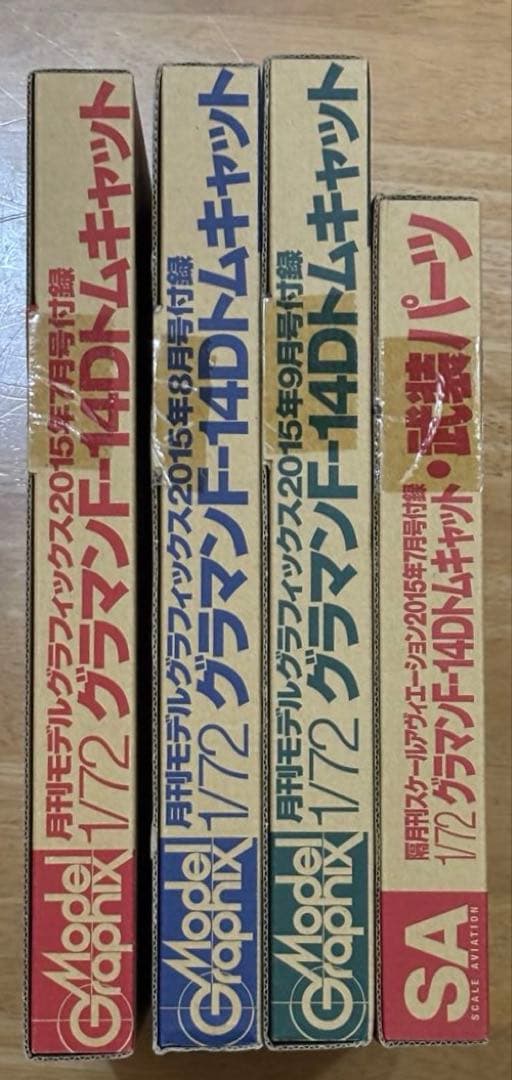 月刊モデルグラフィックス2015年7月号付録
1/72 グラマンF-14Dトムキャット
Model
Graphix
月刊モデルグラフィックス2015年8月号付録
1/72 グラマンF-14Dトムキャット
Model
Graphix
月刊モデルグラフィックス2015年9月号付録
1/72 グラマンF-14Dトムキャット
Model
Graphix
隔月刊スケールアヴィエーション2015年7月号付録
1/72 グラマンF-14Dトムキャット・武装パーツ
SA
SCALE AVIATION